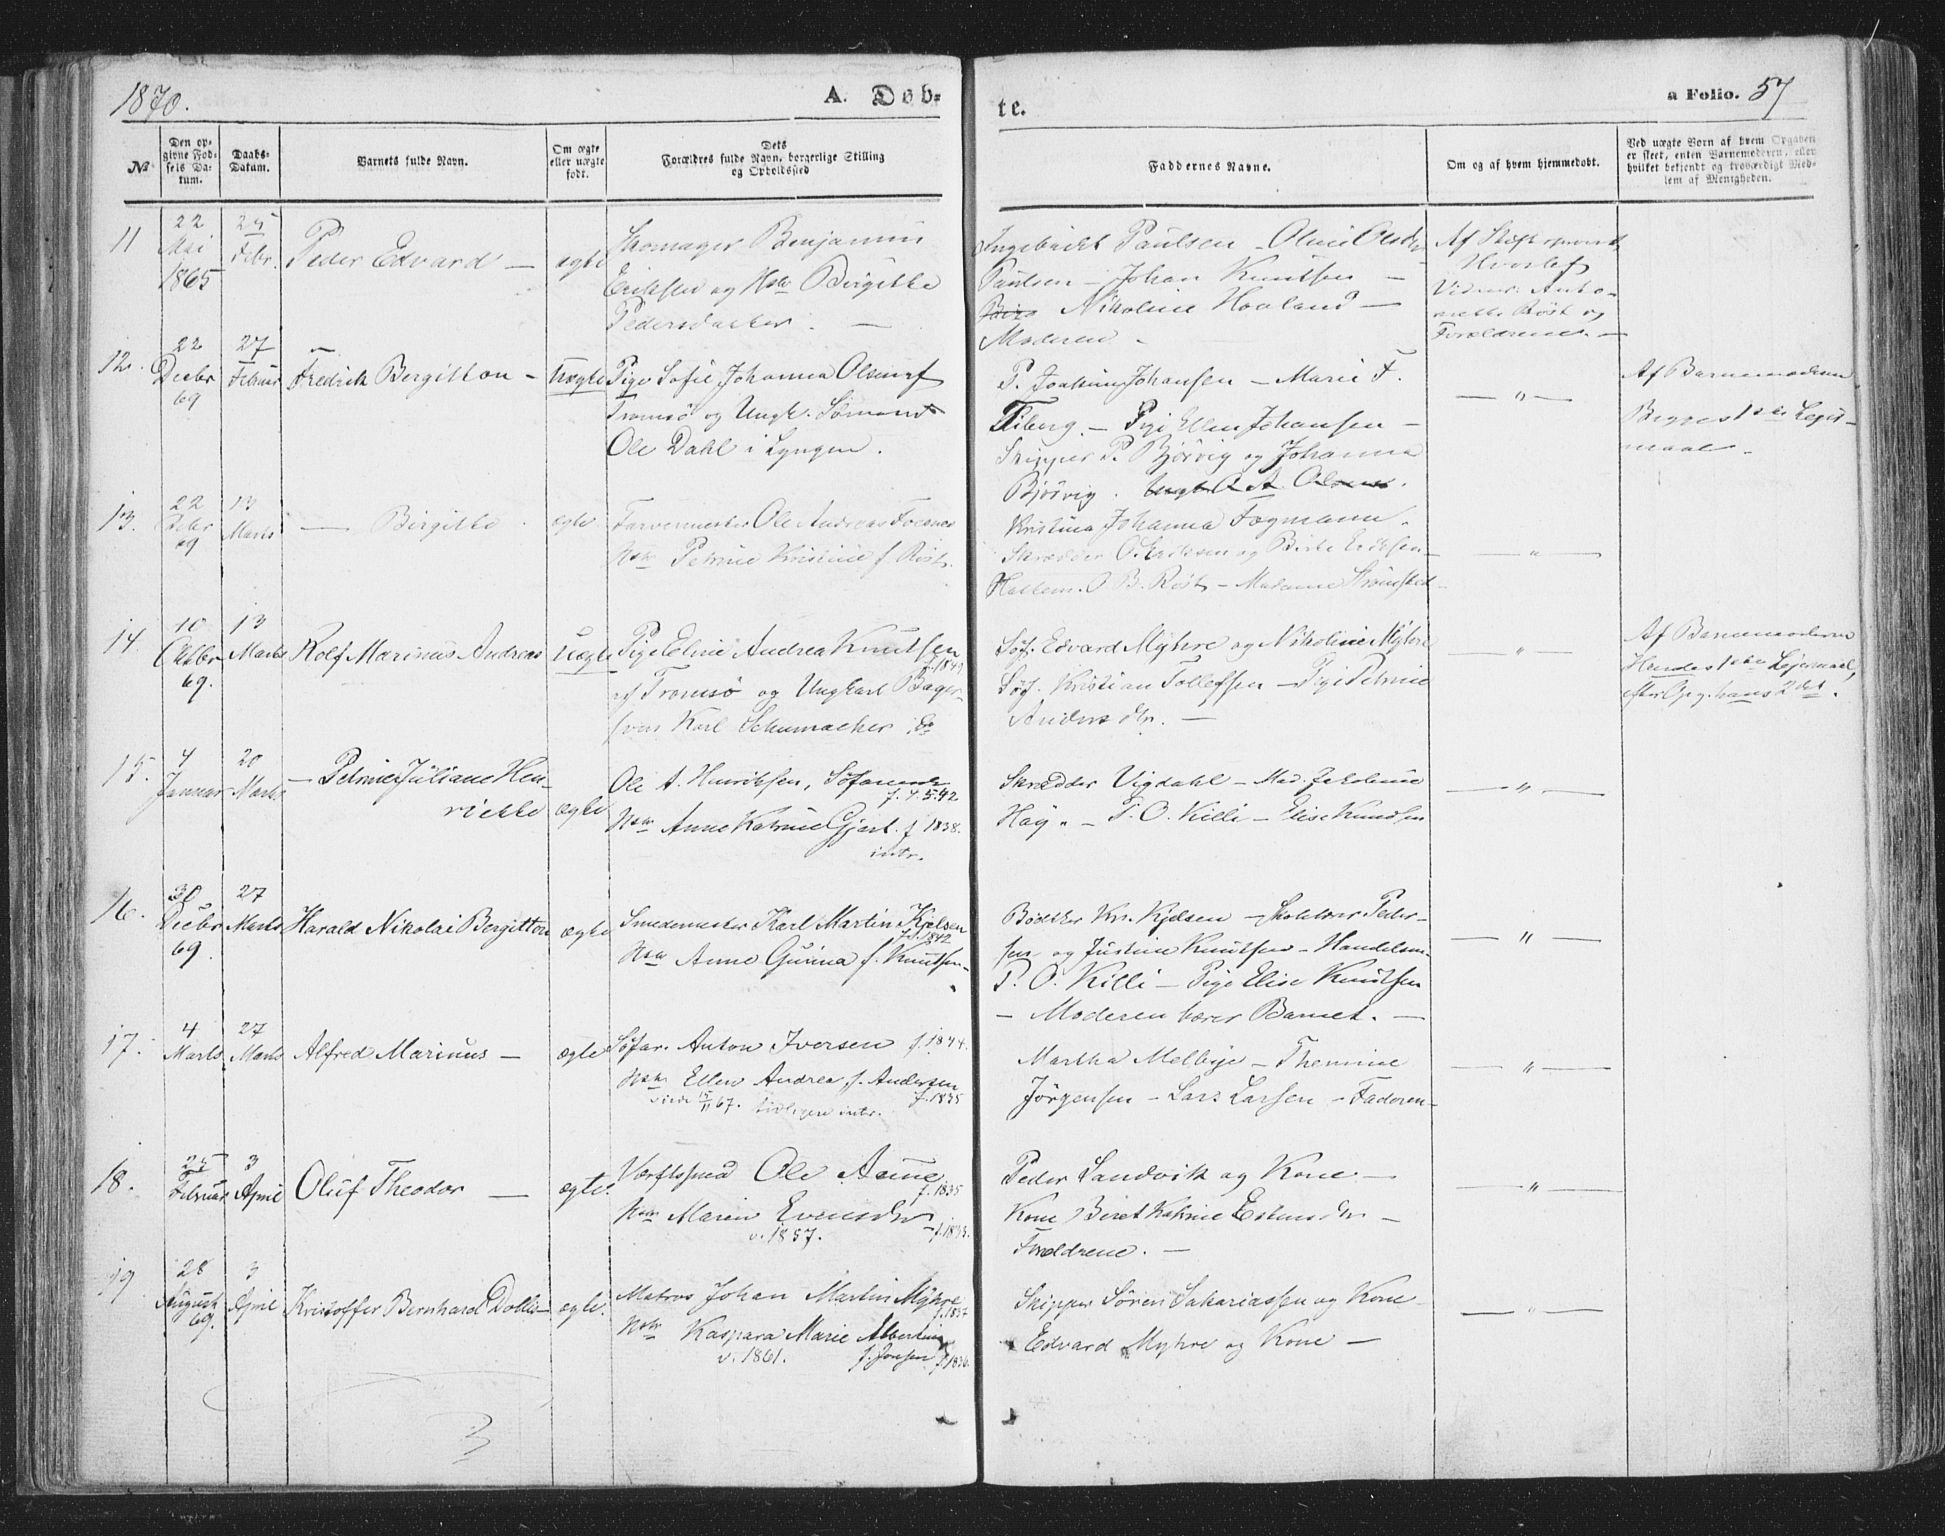 1870.
A. Døb-
te.
a Folio. 57
No
Den op-
givne Fød-
sels Da-
tum.
Daabs-
Datum.
Barnets fulde Navn.
Om ægte
eller uægte
født.
Dets
Forældres fulde Navn, borgerlige Stilling
og Opholdssted
Faddernes Navne.
Om og af hvem hjemmedøbt.
Ved uægte Børn af hvem Opgaven
er skeet, enten Barnemoderen, eller
hvilket bekjendt og troværdigt Med-
lem af Menigheden.
11
22
Mai
1865
25
Febr.
Peder Edvard —
ægte
Skomager Benjamin
Eriksen og Hstr Birgitte
Pedersdatter. —
Ingebrikt Paulsen - Oline
Paulsen - Johan Knutsen —
Nikoline Hoaland —
Moderen -
Af
Hvoslef
Vidner: Anto-
nette Röst og
Forældrene. —
12.
22
Decbr
69
27
Februar
Fredrik Bergitton —
Uægte
Pige Sofie Johanna Olsen af
Tromsø og Ungk. Sömand
Ole Dahl i Lyngen.
P. Joakim Johansen — Marie F.
Fiberg. — Pige Ellen Johansen —
Skipper P. Bjövig og Johanna
Bjövig. Ungk. O. A. Olsen.
— " —
Af Barnemoderen
Begges 1ste Leier-
maal.
13.
22
Febr
69
13
Marts
— Birgitte
ægte
Farvermester Ole Andreas
Hstr Petrine Kristine f. Röst.
Kristina Johanna Fogmann.
Skrædder O. Eriksen og Birte Eriksen —
O. B. Röst — Madame
— " —
14.
10
Oktbr
69.
13
Marts
Rolf Marinus Andreas
Uægte
Pige Eline Andrea Knutsen
f. 1849
af Tromsø og Ungkarl Bager-
svend Karl Schumacher
Søf. Edvard Myhre og Nikoline Myhre
Søf. Kristian Tollefsen — Pige Petrine
Andersdtr. —
— " —
Af Barnemoderen
Hendes 1ste Lejermaal,
hans 2det.
15.
4
Januar
20
Marts
— Petrine Juliane Hen-
riette
ægte
Ole A. Henriksen, Söfarende
f. 7.5.42
Hstr Anne Katrine Gjert. f 1838.
intr.
Skrædder Vigdahl — Mad. Jakobine
Høy. — P. O. Killi — Elise Knudsen
— " —
16.
30
Decbr
69.
27
Marts
Harald Nikolai Bergitton
ægte
Smedemester Karl Martin Kjelsen
f. 1842
Hstr Anne Gurina f. Knutsen —
Bödker Kr. Kjelsen — Peder-
sen og Justine Knutsen — Handelsm.
P. O. Killi — Pige Elise Knutsen
— Moderen bærer Barnet. —
— " —
17.
4
Marts
27
Marts
Alfred Marinus —
ægte
Söfar. Anton Iversen f. 1844.
Hstr Ellen Andrea f. Andersen
viede 15/11 67. tidligere intr. f. 1835
Martha Melbye — Themine
Jörgensen — Lars Larsen — Faderen —
— " —
18.
25
Februar
3
April
Oluf Theodor —
ægte.
Værftssmed Ole Aune
f. 1835
Hstr Maren Evensdtr
v. 1857. f. 1833.
Peder Sandvik og Kone —
Kone Beret Katrine Estensdtr —
Forældrene. —
— " —
19
28
August
69.
3
April
Kristoffer Bernhard —
ægte.
Matros Johan Martin Myhre
f. 1837
Hstr Kaspara Marie Albertine
v. 1861. f. Jonsen f. 1836.
Skipper Sören Sakariassen og Kone
Edvard Myhre og Kone —
— " —